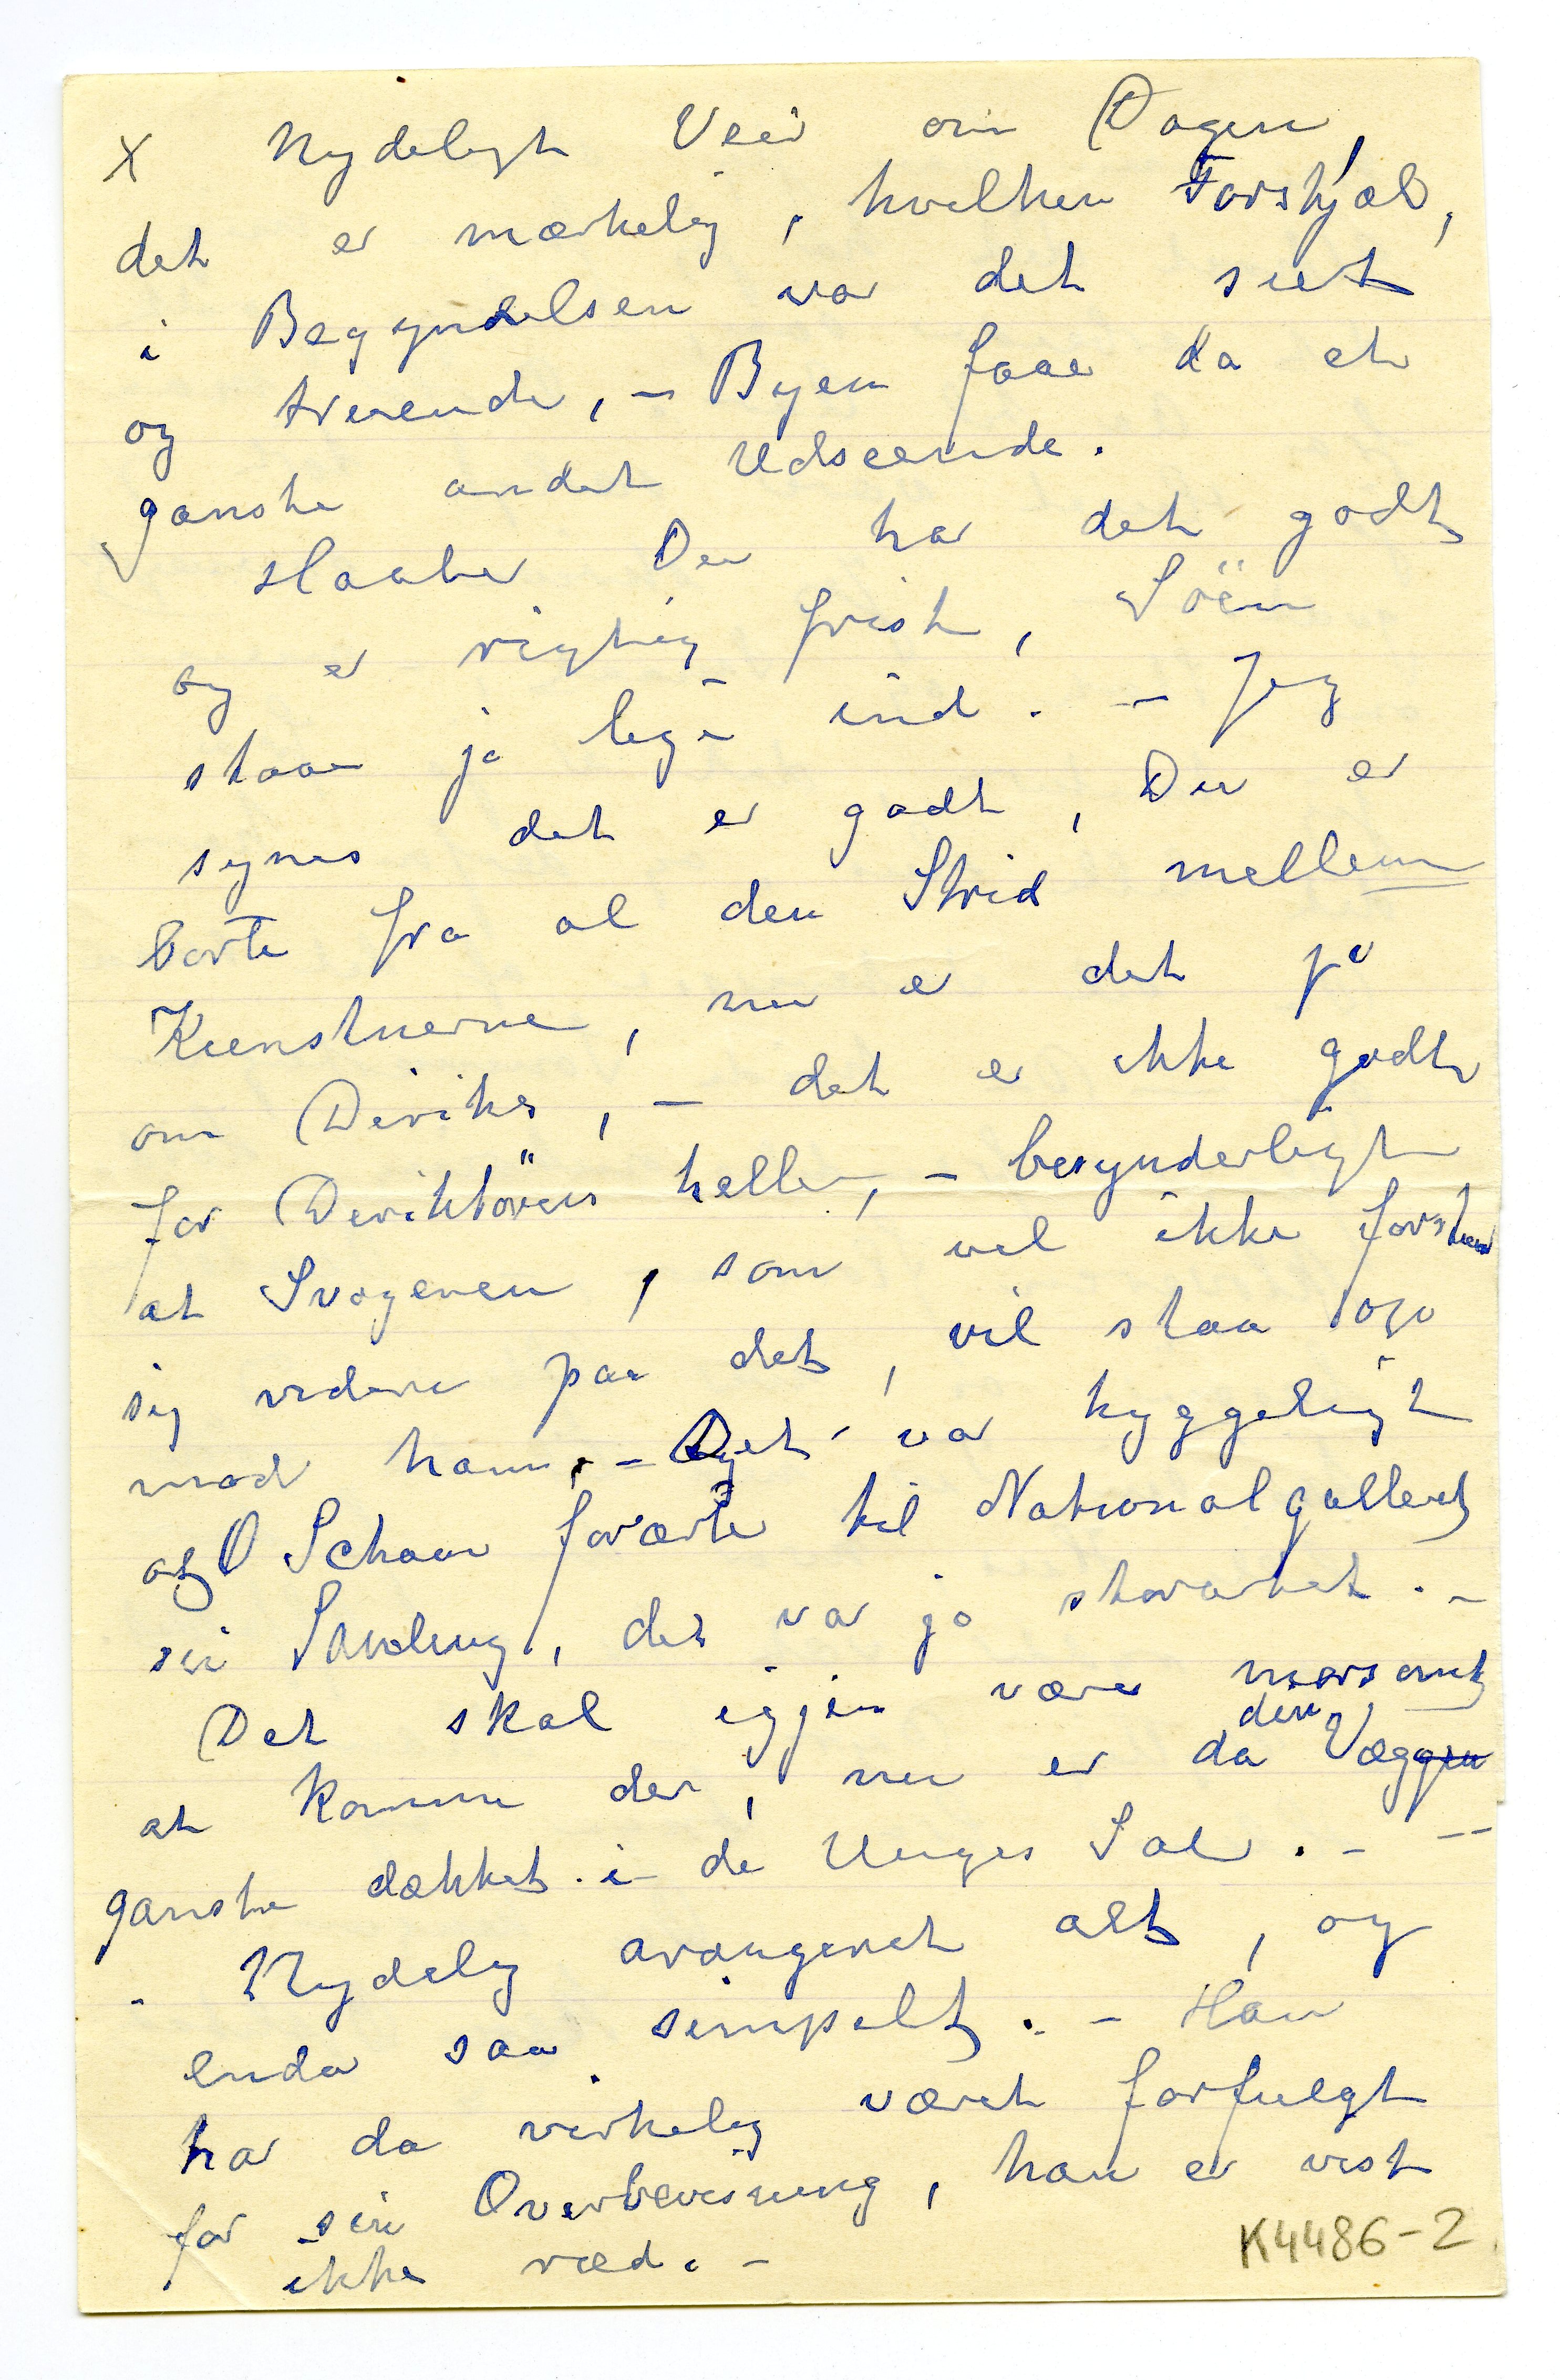 x Nydeligt Veir om Dagen,
det er mærkelig, hvilken Forskjæl,
i Begyndelsen var det surt
og trerende, – Byen faaer da et
ganske andet Udseende.
Haaber Du har det godt
og er rigtig frisk, Söen
staar jo lige ind. – Jeg
synes det er godt, Du er
borte fra al den Strid mellem
Kunstnerne, nu er det jo
om Diriks, – det er ikke godt
for Direktören heller, – besynderligt
at Svogeren, som vel ikke forstaar
sig videre paa det, vil staa op
mod ham. – Det var hyggeligt
at O Schou forærte til Nationalgalleriet
sin Samling, det var jo storartet. –
Det skal igjen være morsomt
at komme der, nu er da den Væggen
ganske dækket i de Unges Sal. – –
– Nydelig arangeret alt, og
enda saa simpelt. – Han
har da virkelig været forfulgt
for sin Overbevisning, han er vist
ikke ræd. –
K4486-2